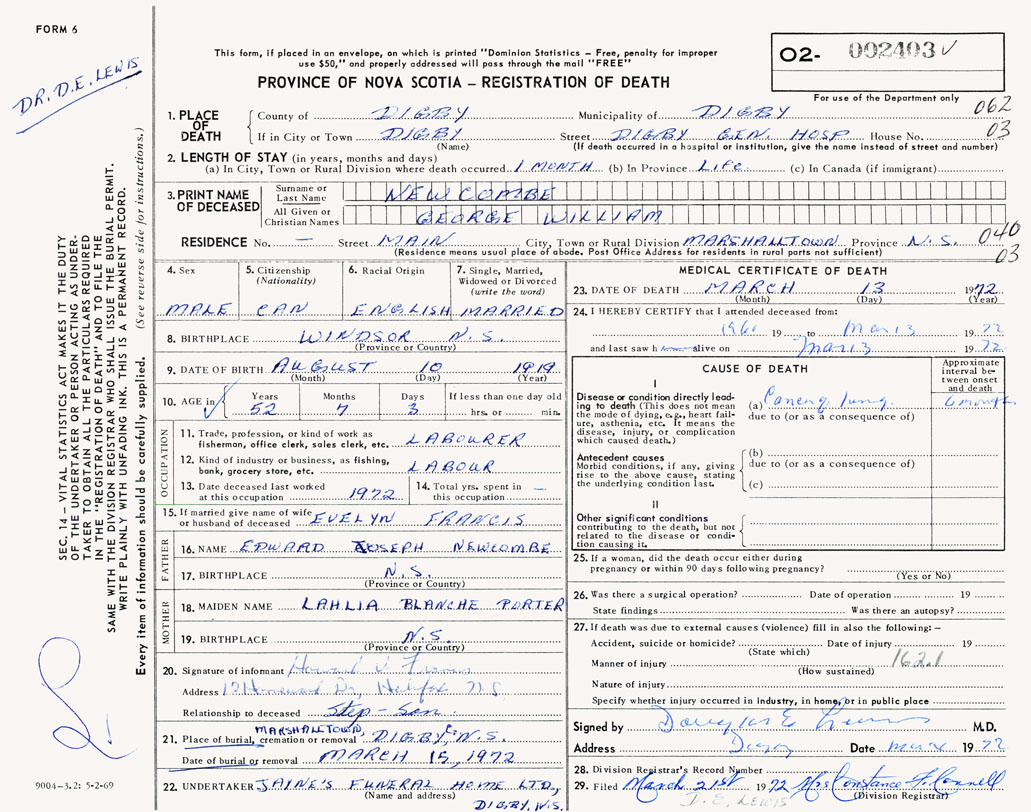 FORM 6
DR. D.E. LEWIS
This form, if placed in an envelope, on which is printed "Dominion Statistics – Free, penalty for improper
use $50," and properly addressed will pass through the mail "FREE"
PROVINCE OF NOVA SCOTIA – REGISTRATION OF DEATH
02- 002403 ✓
For use of the Department only
062
03
1. PLACE OF DEATH
County of DIGBY Municipality of DIGBY
If in City or Town DIGBY Street DIGBY GEN. HOSP House No.
(Name) (If death occurred in a hospital or institution, give the name instead of street and number)
2. LENGTH OF STAY (in years, months and days)
(a) In City, Town or Rural Division where death occurred 1 MONTH (b) In Province Life (c) In Canada (if immigrant)
3. PRINT NAME OF DECEASED
Surname or Last Name NEWCOMBE
All Given or Christian Names GEORGE WILLIAM
RESIDENCE No. — Street MAIN City, Town or Rural Division MARSHALLTOWN Province N.S.
(Residence means usual place of abode. Post Office Address for residents in rural parts not sufficient)
040
03
4. Sex
MALE
5. Citizenship
(Nationality)
CAN
6. Racial Origin
ENGLISH
7. Single, Married,
Widowed or Divorced
(write the word)
MARRIED
8. BIRTHPLACE WINDSOR N.S.
(Province or Country)
9. DATE OF BIRTH AUGUST 10 1919
(Month) (Day) (Year)
10. AGE in Years 52 Months 7 Days 3 If less than one day old
hrs. or min.
OCCUPATION
11. Trade, profession, or kind of work as
fisherman, office clerk, sales clerk, etc. LABOURER
12. Kind of industry or business, as fishing,
bank, grocery store, etc. LABOUR
13. Date deceased last worked
at this occupation 1972
14. Total yrs. spent in
this occupation —
15. If married give name of wife
or husband of deceased EVELYN FRANCIS
FATHER
16. NAME EDWARD JOSEPH NEWCOMBE
17. BIRTHPLACE N.S.
(Province or Country)
MOTHER
18. MAIDEN NAME LAHLIA BLANCHE PORTER
19. BIRTHPLACE N.S.
(Province or Country)
20. Signature of informant
Address Halifax N.S.
Relationship to deceased Step-Son
21. Place of burial, cremation or removal MARSHALLTOWN, DIGBY, N.S.
Date of burial or removal MARCH 15, 1972
22. UNDERTAKER JAYNE'S FUNERAL HOME LTD.,
(Name and address) DIGBY, N.S.
MEDICAL CERTIFICATE OF DEATH
23. DATE OF DEATH MARCH 13 1972
(Month) (Day) (Year)
24. I HEREBY CERTIFY that I attended deceased from:
19 to Mar 13 1972
and last saw h alive on Mar 13 1972
CAUSE OF DEATH
Approximate
interval be-
tween onset
and death
I
Disease or condition directly lead-
ing to death (This does not mean
the mode of dying, e.g., heart fail-
ure, asthenia, etc. It means the
disease, injury, or complication
which caused death.)
(a) Cancer lung 6 months
due to (or as a consequence of)
Antecedent causes
Morbid conditions, if any, giving
rise to the above cause, stating
the underlying condition last.
(b)
due to (or as a consequence of)
(c)
II
Other significant conditions
contributing to the death, but not
related to the disease or condi-
tion causing it.
25. If a woman, did the death occur either during
pregnancy or within 90 days following pregnancy?
(Yes or No)
26. Was there a surgical operation? Date of operation 19
State findings Was there an autopsy?
27. If death was due to external causes (violence) fill in also the following: –
Accident, suicide or homicide? Date of injury 19
(State which)
Manner of injury 162.1
(How sustained)
Nature of injury
Specify whether injury occurred in industry, in home, or in public place
Signed by Douglas E Lewis M.D.
Address Digby Date 1972
28. Division Registrar's Record Number
29. Filed March 21st 1972 Mrs Constance
(Division Registrar)
D.E. LEWIS
SEC. 14 – VITAL STATISTICS ACT MAKES IT THE DUTY
OF THE UNDERTAKER OR PERSON ACTING AS UNDER-
TAKER TO OBTAIN ALL THE PARTICULARS REQUIRED
IN THE "REGISTRATION OF DEATH" AND TO FILE THE
SAME WITH THE DIVISION REGISTRAR WHO SHALL ISSUE THE BURIAL PERMIT.
WRITE PLAINLY WITH UNFADING INK. THIS IS A PERMANENT RECORD.
Every item of information should be carefully supplied. (See reverse side for instructions.)
9004–3.2: 5-2-69